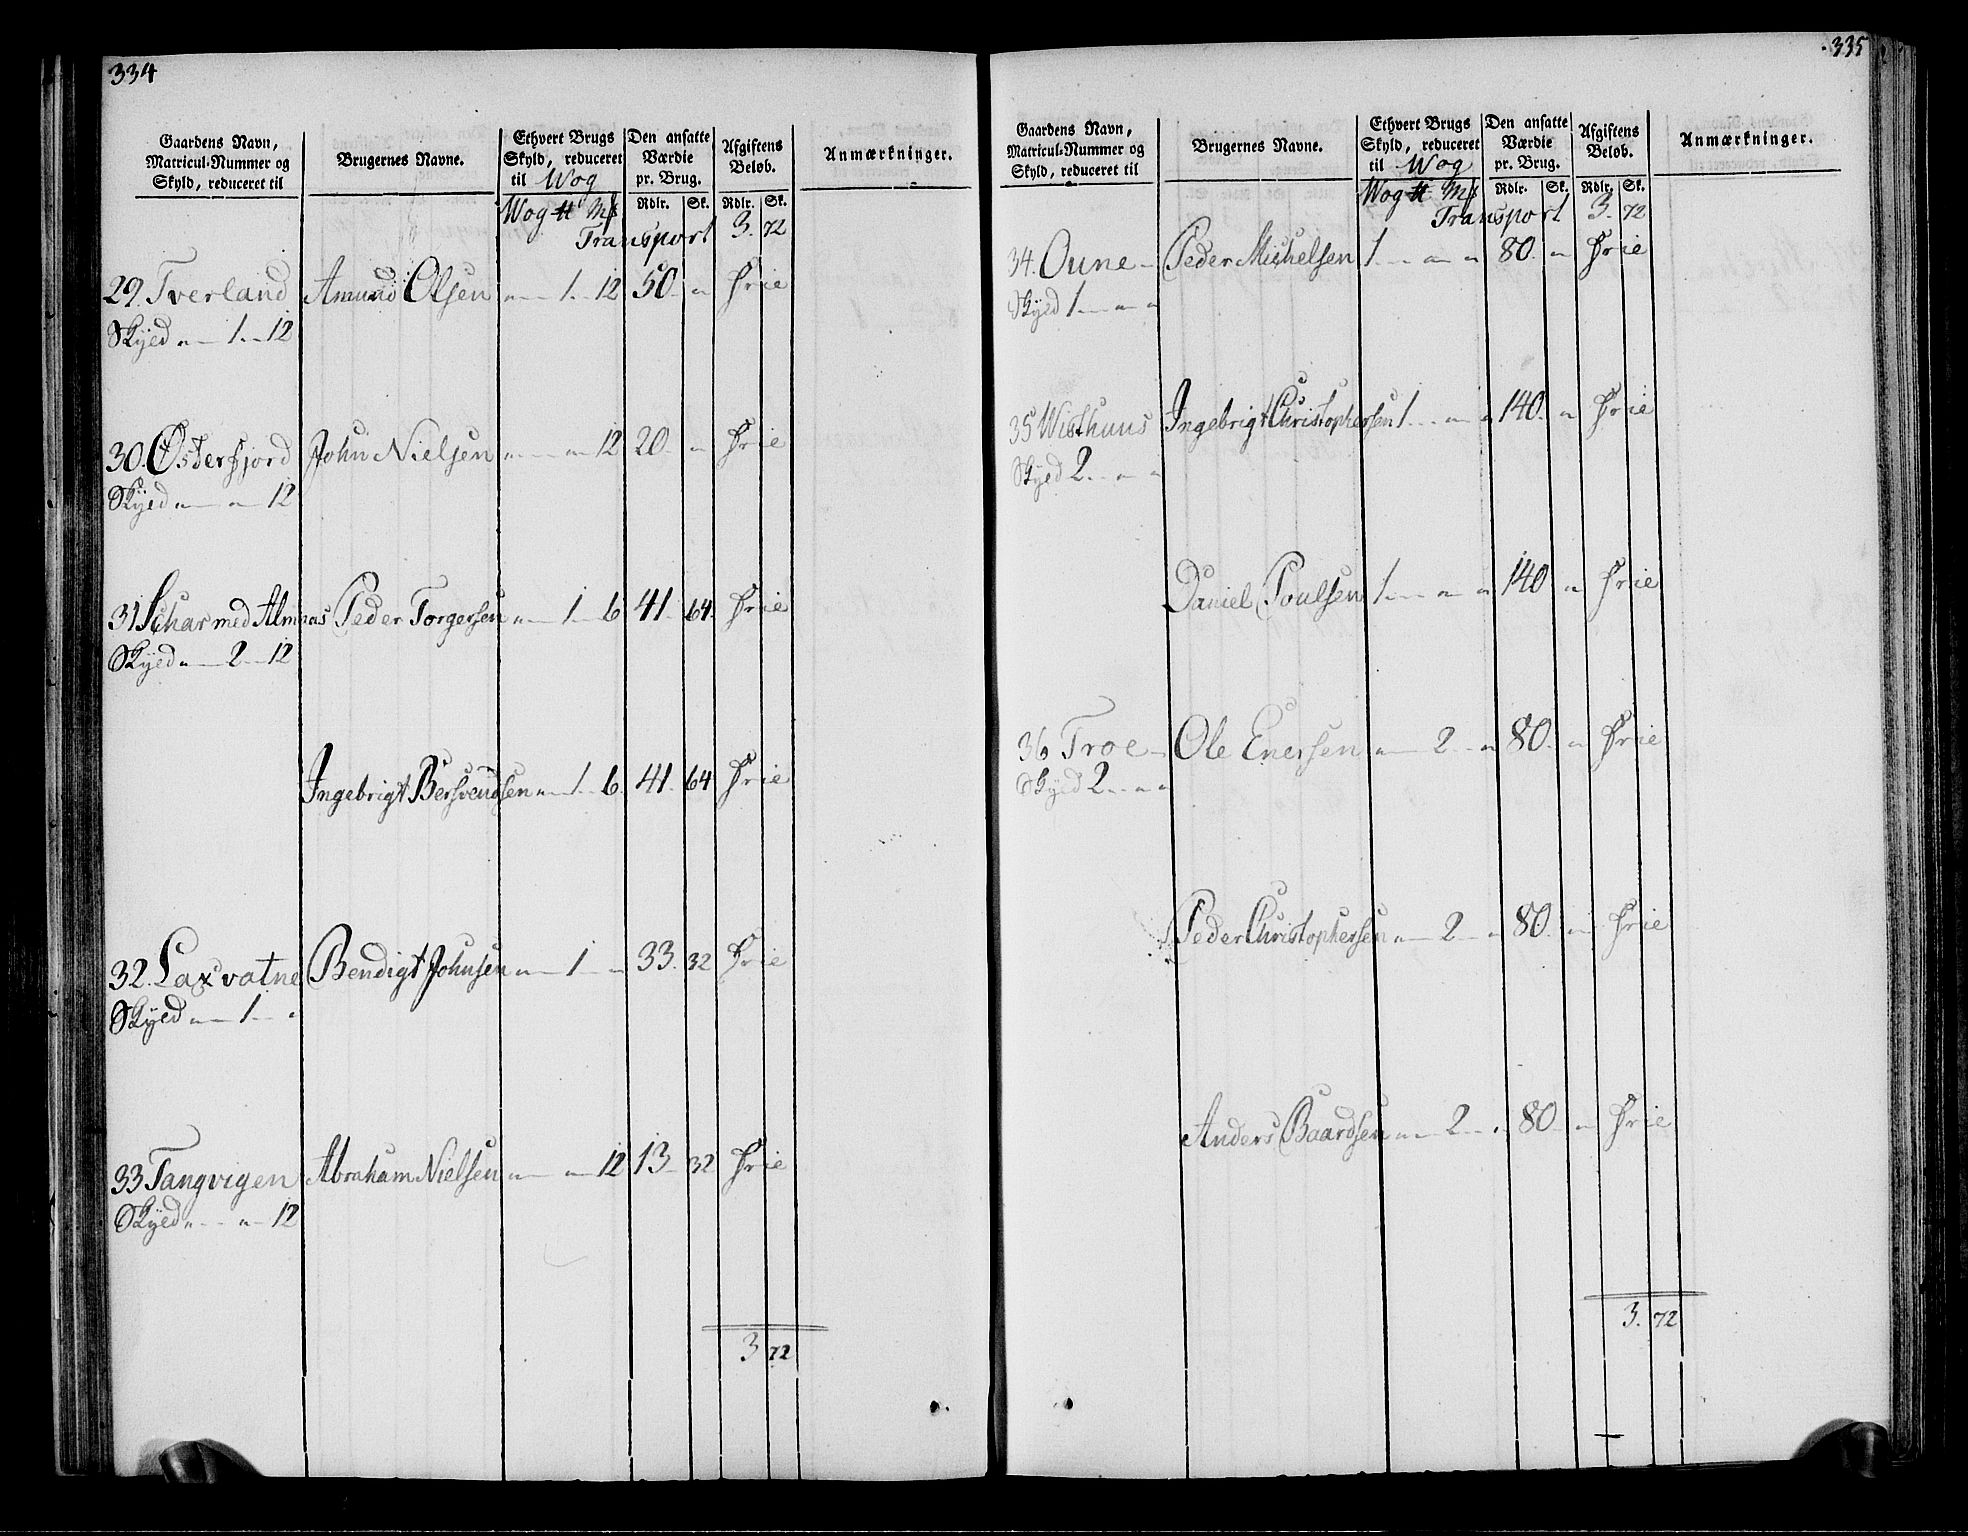 334
Gaardens Navn, Matricul-Nummer og Skyld, reduceret til | Brugernes Navne. | Ethvert Brugs Skyld, reduceret til Wog | Den ansatte Værdie pr. Brug. | Afgiftens Beløb. | Anmærkninger.
Wog ℔ Mk | Rdlr. | Sk. | Rdlr. | Sk.
Transport 3. 72
29. Tverland Amund Olsen „ — 1. 12 50. „ Frie
Skyed „ — 1. — 12
30. Østerfjord John Nielsen „ — „ — 12 20. „ Frie
Skyed „ — „ — 12
31 Schar med Almnas Peder Torgersen „ — 1. 6 41. 64. Frie
Skyed „ — 2 — 12
Ingebrigt Bersvendsen „ — 1. 6. 41. 64 Frie
32. Laxvatne Bendigt Johnsen „ — 1. — „ 33. 32 Frie
Skyed „ — 1. — „
33 Tangvigen Abraham Nielsen „ — „ — 12 13. 32 Frie
Skyed „ — „ — 12
3 72
335
Gaardens Navn, Matricul-Nummer og Skyld, reduceret til | Brugernes Navne. | Ethvert Brugs Skyld, reduceret til Wog | Den ansatte Værdie pr. Brug. | Afgiftens Beløb. | Anmærkninger.
Wog ℔ Mk | Rdlr. | Sk. | Rdlr. | Sk.
Transport 3. 72
34. Oune — Peder Michelsen 1. — „ — „ 80. „ Frie
Skyed 1. — „ — „
35 Wisthuus Ingebrigt Christophersen 1. — „ — „ 140. „ Frie
Skyed 2. — „ — „
Daniel Poulsen 1. — „ — „ 140 „ Frie
36 Troe — Ole Enersen „ — 2. — „ 80. „ Frie
Skyed 2. — „ — „
Peder Christophersen „ — 2. — „ 80. „ Frie
Anders Baardsen „ — 2. — „ 80. „ Frie
3. 72